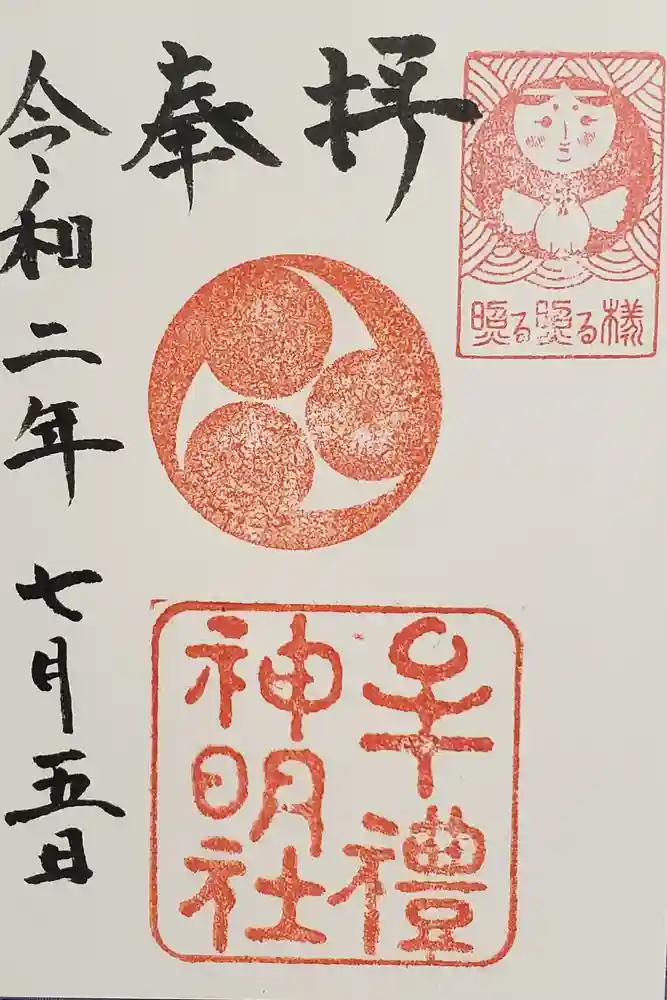 奉拝
照る照る様
牟禮
神明社
令和二年七月五日